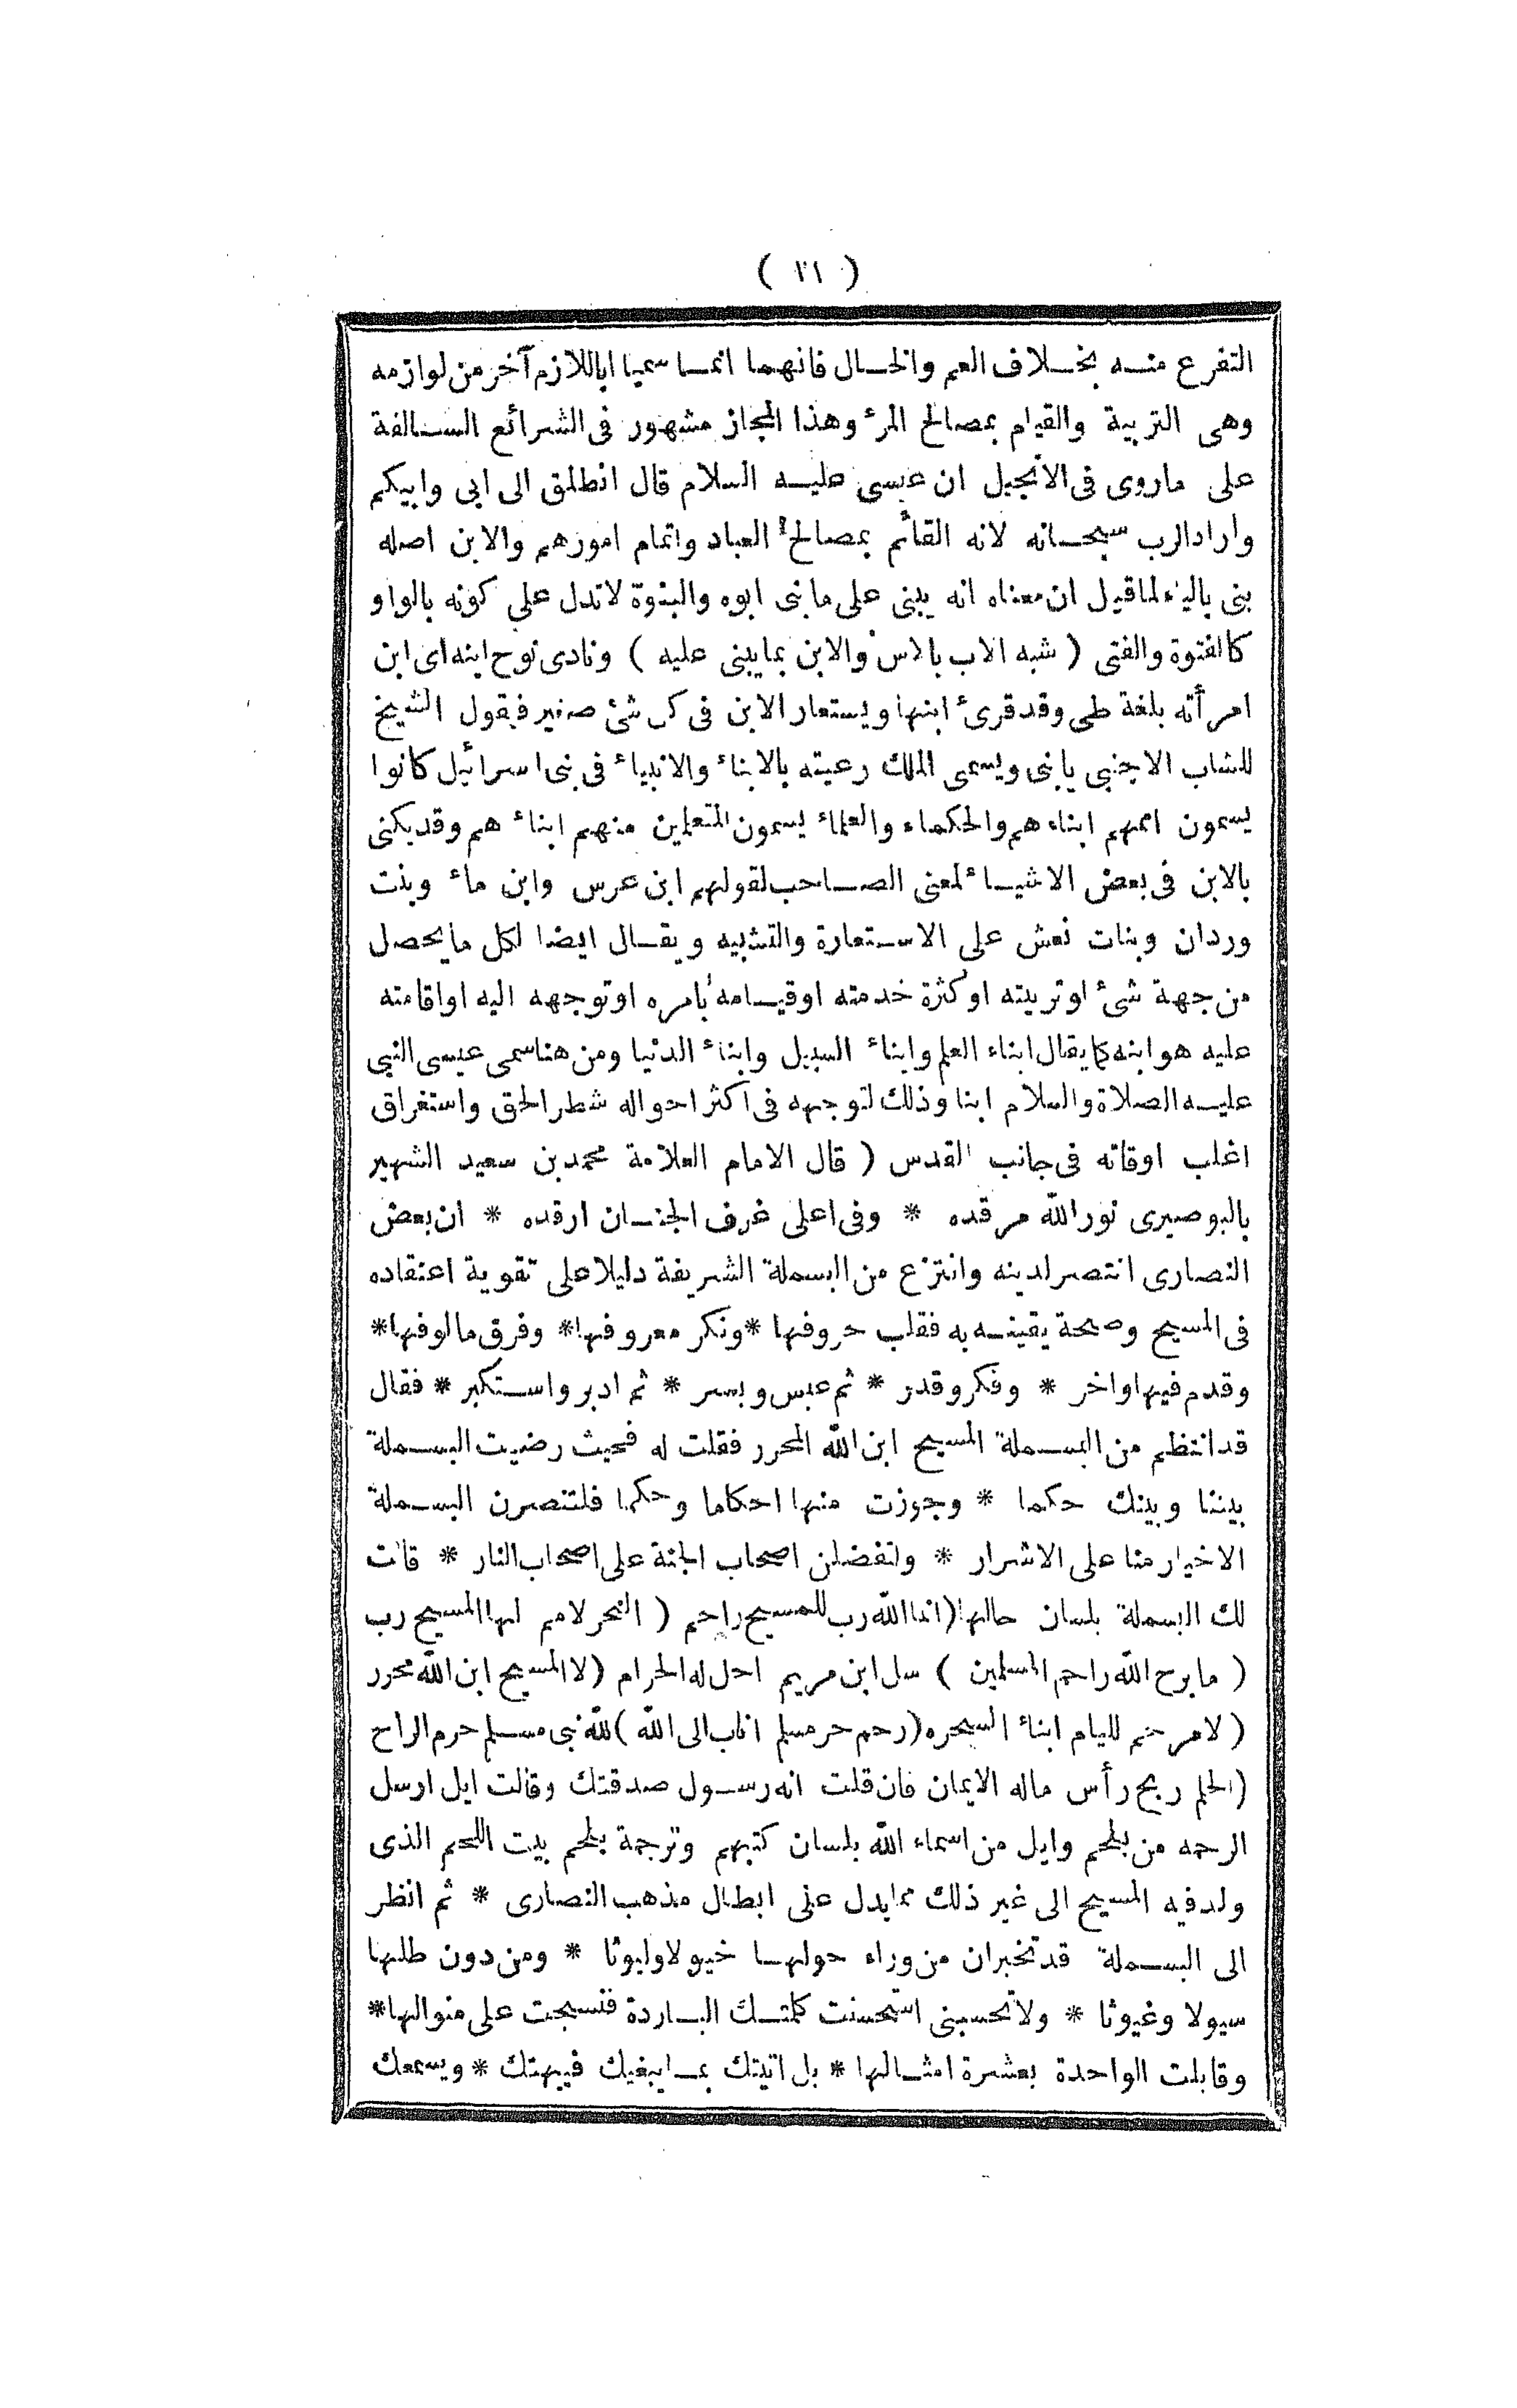 ( ٢١ )
التفرع منه بخلاف العم والخال فانهما انما سميا اباللازم آخر من لوازمه
وهى التربية والقيام بمصالح المرء وهذا المجاز مشهور فى الشرائع السالفة
على ماروى فى الانجيل ان عيسى عليه السلام قال انطلق الى ابى وابيكم
وارادالرب سبحانه لانه القائم بمصالح العباد واتمام امورهم والابن اصله
بنى بالياء لماقيل ان معناه انه يبنى على مابنى ابوه والبنوة لاتدل على كونه بالواو
كالفتوة والفتى ( شبه الاب بالاس والابن بمايبنى عليه ) ونادى نوح ابنه اى ابن
امرأته بلغة طى وقدقرئ ابنها ويستعار الابن فى كل شئ صغير فيقول الشيخ
للشاب الاجنبى يابنى ويسمى الملك رعيته بالابناء والانبياء فى بنى اسرائيل كانوا
يسمون اممهم ابناءهم والحكماء والعلماء يسمون المتعلمين منهم ابناءهم وقديكنى
بالابن فى بعض الاشياء لمعنى الصاحب لقولهم ابن عرس وابن ماء وبنت
وردان وبنات نعش على الاستعارة والتشبيه ويقال ايضا لكل مايحصل
من جهة شئ اوتربيته اوكثرة خدمته اوقيامه بامره اوتوجهه اليه اواقامته
عليه هوابنه كمايقال ابناء العلم وابناء السبيل وابناء الدنيا ومن هناسمى عيسى النبى
عليه الصلاة والسلام ابنا وذلك لتوجهه فى اكثر احواله شطر الحق واستغراق
اغلب اوقاته فى جانب القدس ( قال الامام العلامة محمد بن سعيد الشهير
بالبوصيرى نور الله مرقده * وفى اعلى غرف الجنان ارقده * ان بعض
النصارى انتصر لدينه وانتزع من البسملة الشريفة دليلا على تقوية اعتقاده
فى المسيح وصحة يقينه به فقلب حروفها *ونكر معروفها* وفرق مالوفها*
وقدم فيها واخر * وفكر وقدر * ثم عبس وبسر * ثم ادبر واستكبر * فقال
قدانتظم من البسملة المسيح ابن الله المحرر فقلت له فحيث رضيت البسملة
بيننا وبينك حكما * وجوزت منها احكاما وحكما فلتنصرن البسملة
الاخيار منا على الاشرار * ولتفضلن اصحاب الجنة على اصحاب النار * قالت
لك البسملة بلسان حالها (انما الله رب للمسيح راحم ( النحر لامم لها المسيح رب
( مابرح الله راحم المسلمين ) سل ابن مريم احل له الحرام (لا المسيح ابن الله محرر
( لامرحم لليام ابناء السحره (رحم حر مسلم اناب الى الله ) لله نبى مسلم حرم الراح
(الحلم ربح رأس ماله الايمان فان قلت انه رسول صدقتك وقالت ايل ارسل
الرحمه من بلحم وايل من اسماء الله بلسان كتبهم وترجمة بلحم بيت اللحم الذى
ولدفيه المسيح الى غير ذلك ممايدل على ابطال مذهب النصارى * ثم انظر
الى البسملة قدتخبران من وراء حولها خيولا وليوثا * ومن دون طلها
سيولا وغيوثا * ولاتحسبنى استحسنت كلمتك الباردة فنسجت على منوالها*
وقابلت الواحدة بعشرة امثالها * بل اتيتك بمايبغيك فيبهتك * ويسمعك